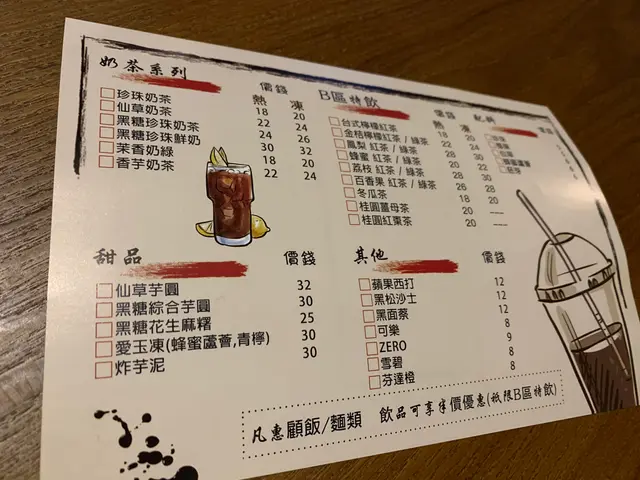 奶茶系列
價錢
熱 凍
珍珠奶茶 18 20
仙草奶茶 22 24
黑糖珍珠奶茶 24 26
黑糖珍珠鮮奶 30 32
茉香奶綠 18 20
香芋奶茶 22 24
B區特飲
價錢
熱 凍
台式檸檬紅茶 18 20
金桔檸檬紅茶 / 綠茶 22 24
鳳梨 紅茶 / 綠茶 28 30
蜂蜜 紅茶 / 綠茶 20 22
荔枝 紅茶 / 綠茶 28 30
百香果 紅茶 / 綠茶 26 28
冬瓜茶 18 20
桂圓薑母茶 20 —
桂圓紅棗茶 20 —
配料
甜品 價錢
仙草芋圓 32
黑糖綜合芋圓 30
黑糖花生麻糬 25
愛玉凍(蜂蜜蘆薈,青檸) 30
炸芋泥 30
其他 價錢
蘋果西打 12
黑松沙士 12
黑面蔡 12
可樂 8
ZERO 9
雪碧 8
芬達橙 8
凡惠顧飯/麵類 飲品可享半價優惠(祇限B區特飲)